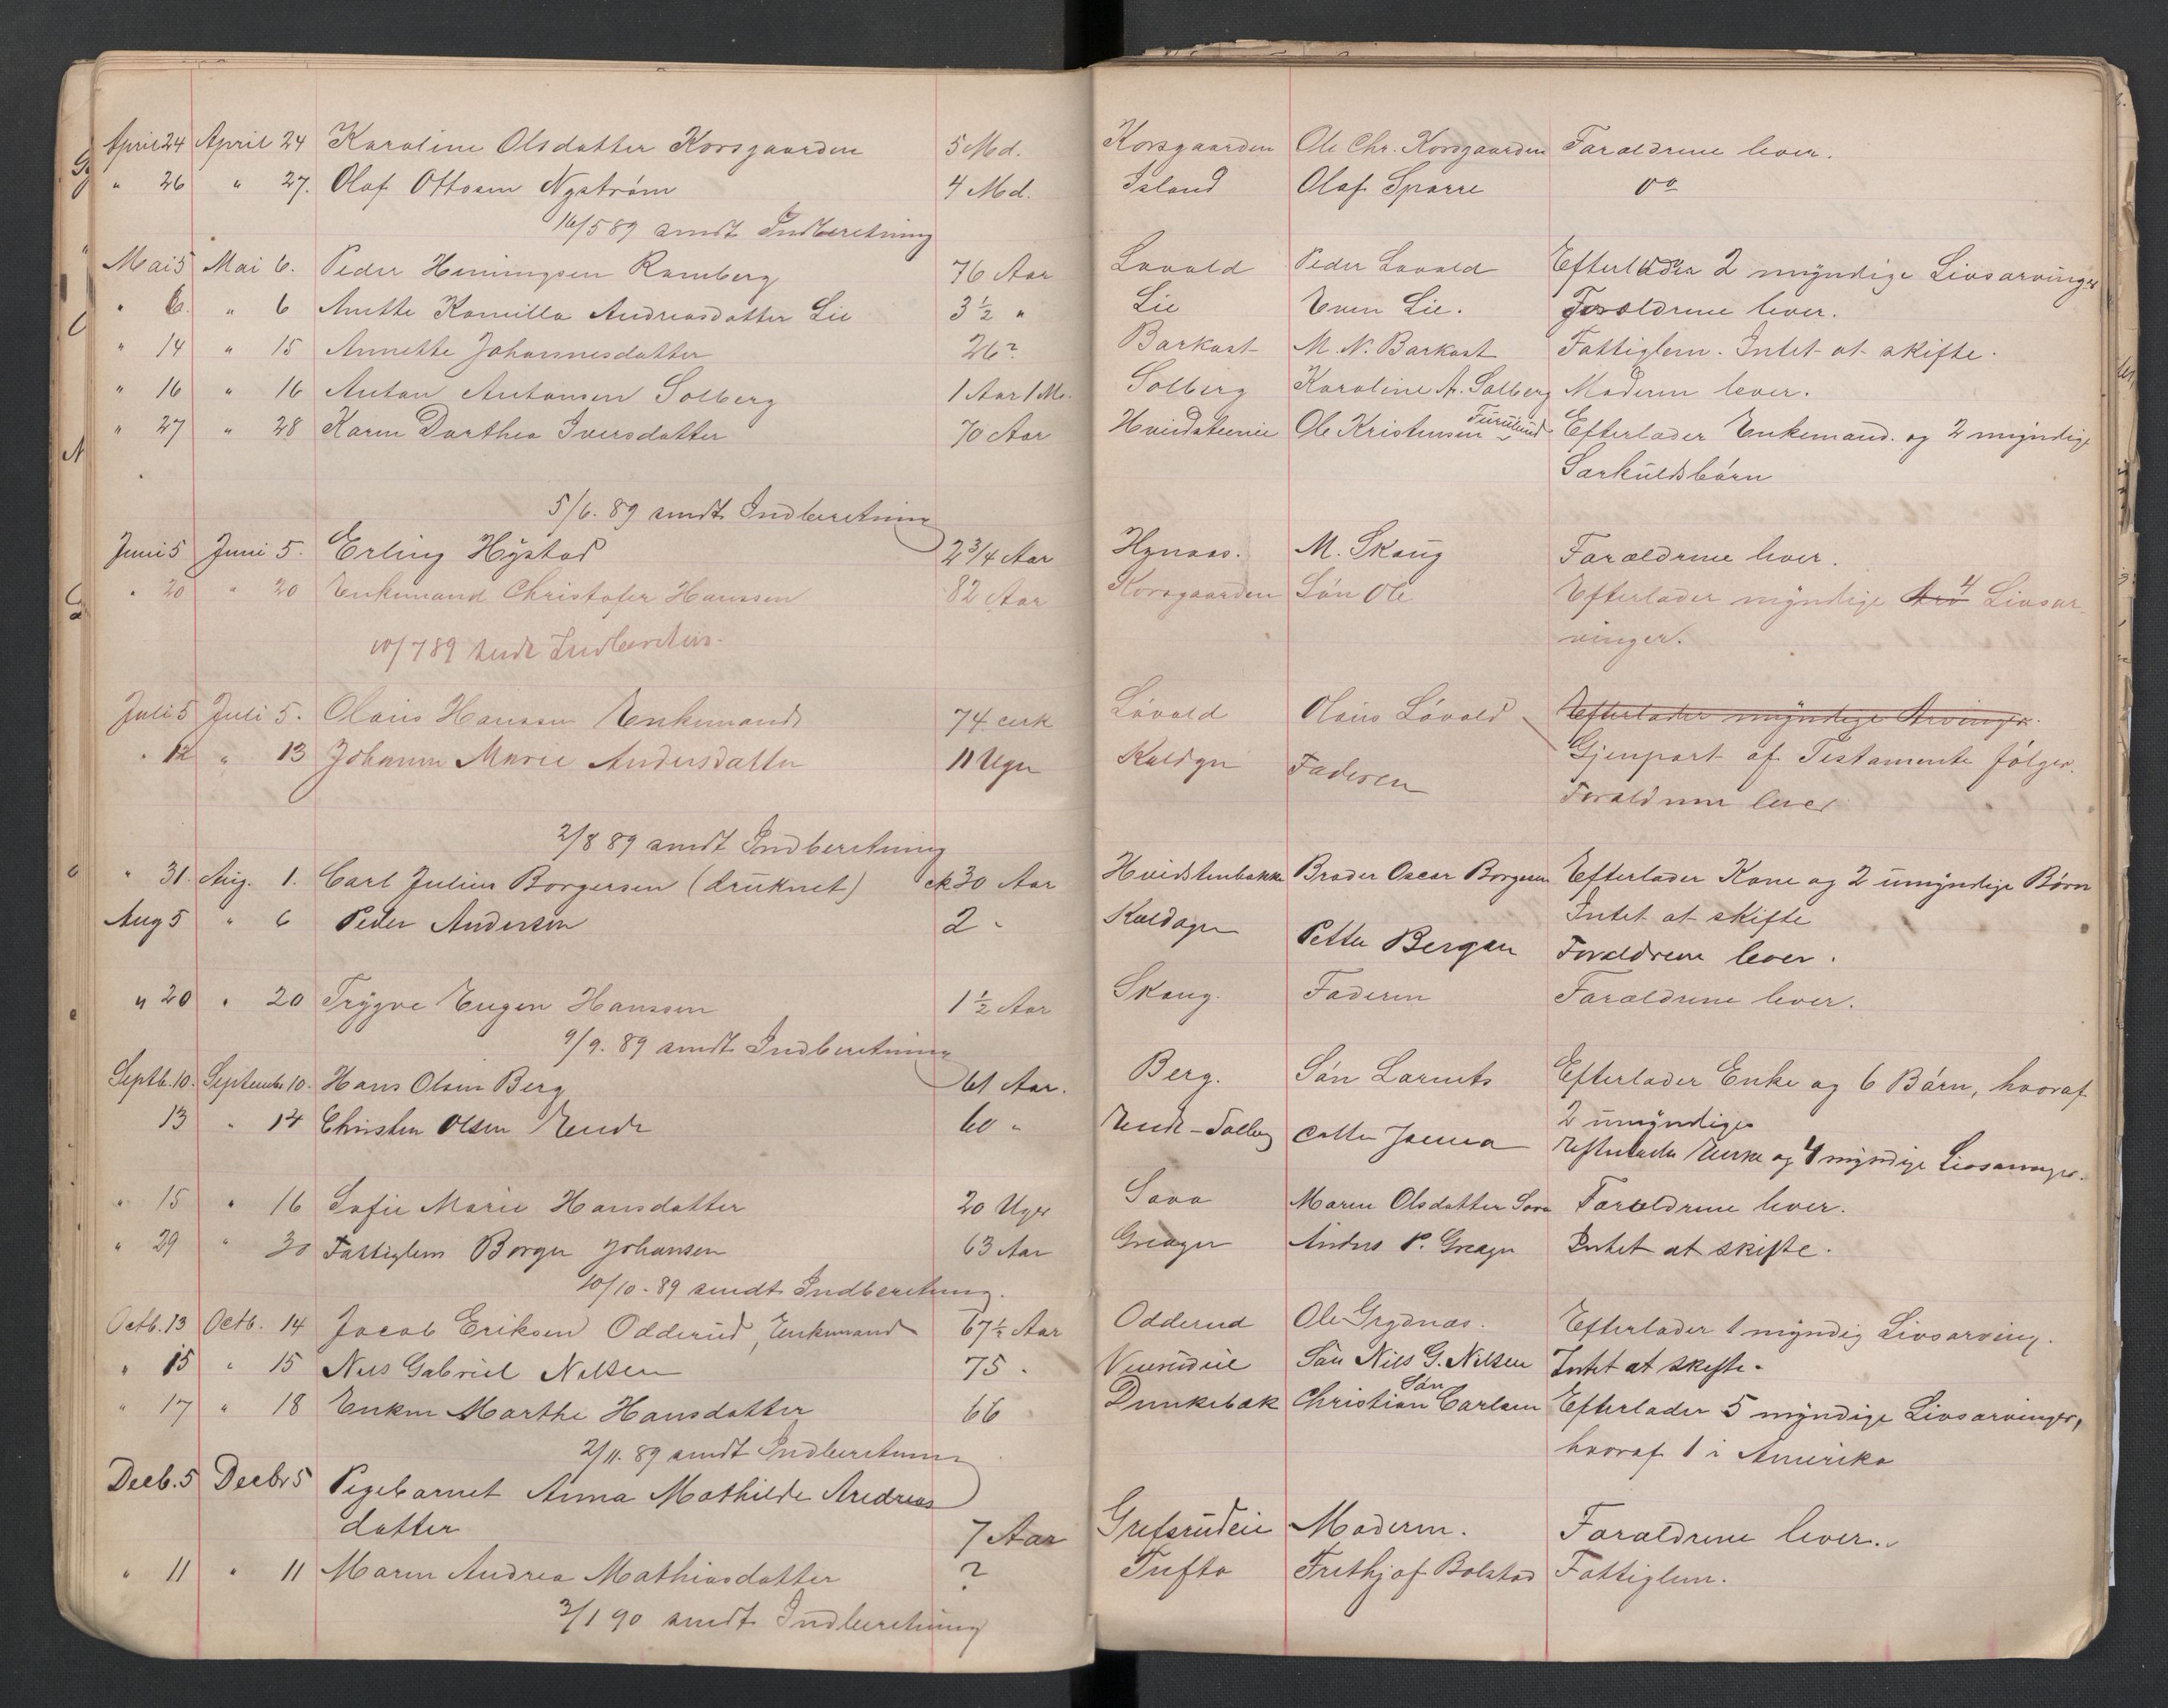 April 24 April 24 Karoline Olsdatter Korsgaarden 5 Md. Korsgaarden Ole Chr. Korsgaarden Forældrene lever.
" 26 " 27. Olaf Ottosen Nystrøm 4 Md. Island Olaf Sparre do
16/5 89 sendt Indberetning
Mai 5 Mai 6. Peder Henningsen Ramberg 76 Aar Løvald Peder Løvald Efterlader 2 myndige Livsarvinger
" 6. " 6 Anette Kamilla Andreasdatter Lie 3 ½ " Lie Even Lie. Forældrene lever.
" 14 " 15 Annette Johannesdatter 26? Barkost M. N. Barkost Fattiglem. Intet at skifte.
" 16 " 16 Anton Antonsen Solberg 1 Aar 1 Md. Solberg Karoline A. Solberg Moderen lever.
" 27 " 28 Karen Dorthea Iversdatter 70 Aar Hvidsteneie Ole Kristensen Furulund Efterlader Enkemand og 2 myndige
Særkuldsbørn
5/6. 89 sendt Indberetning
Juni 5 Juni 5. Erling Hystad 2 3/4 Aar M. Skaug Forældrene lever.
" 20 " 20 Enkemand Christofer Hanssen 82 Aar Korsgaarden Søn Ole Efterlader myndige Arv 4 Livsar-
vinger.
10/7 89 sendt Indberetn.
Juli 5 Juli 5. Olaus Hanssen Enkemand 74 cirk Løvald Olaus Løvald Efterlader myndige Arvinger.
Gjenpart af Testamente følger.
" 12 " 13 Johanne Marie Andersdatter 11 Uger Kaldager Faderen
Forældrene lever
2/8 89 sendt Indberetning
" 31. Aug. 1. Carl Julius Borgersen (druknet) ck 30 Aar Hvidstenbakke Broder Oscar Borgersen Efterlader Kone og 2 umyndige Børn
Intet at skifte
Aug 5 " 6 Peder Andersen 2 " Kaldager Petter Bergan Forældrene lever.
" 20 " 20 Trygve Eugen Hanssen 1 ½ Aar Skaug. Faderen Forældrene lever.
9/9. 89 sendt Indberetning
Septb. 10. Septembr 10. Hans Olsen Berg 61 Aar. Berg. Søn Laurits Efterlader Enke og 6 Børn, hvoraf
2 umyndige
13 " 14 Christen Olsen 60 " Josena Efterlader Enke og 4 myndige Livsarvinger.
" 15 " 16 Sofie Marie Hansdatter 20 Uger Sova Maren Olsdatter Sova Forældrene lever.
" 29 " 30 Fattiglem Borger Johansen 63 Aar Greager Anders P. Greager Intet at skifte.
10/10. 89 sendt Indberetning.
Octb. 13 Octb. 14 Jacob Eriksen Odderud, Enkemand 67 ½ Aar Odderud Ole Grydnæs. Efterlader 1 myndig Livsarving.
" 15 " 15 Nils Gabriel Nilsen 75 " Søn Nils G. Nilsen Intet at skifte.
" 17 " 18 Enken Marthe Hansdatter 66 Dunkebæk Søn Christian Carlsen Efterlader 5 myndige Livsarvinger,
hvoraf 1 i Amerika
2/11. 89 sendt Indberetning
Decb. 5 Decbr 5 Pigebarnet Anna Mathilde Andreas
datter 7 Aar Grefsrudeie Moderen. Forældrene lever.
" 11 " 11 Maren Andrea Mathiasdatter ? Tufta Frithjof Bolstad Fattiglem.
3/1 90 sendt Indberetning